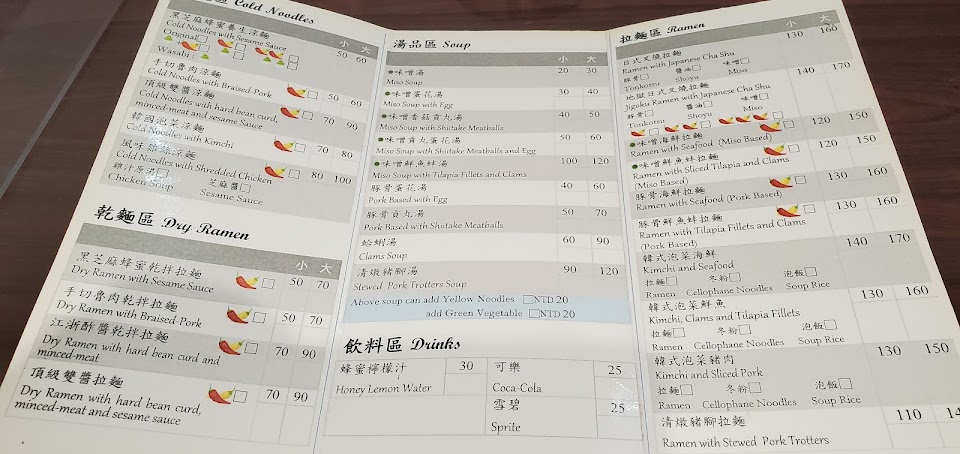 區 Cold Noodles
小 大
黑芝麻蜂蜜養生涼麵
Cold Noodles with Sesame Sauce 50 60
Original
Wasabi
手切魯肉涼麵
Cold Noodles with Braised Pork 50 60
頂級雙醬涼麵
Cold Noodles with hard bean curd, minced-meat and sesame sauce 70 90
韓國泡菜涼麵
Cold Noodles with Kimchi 70 80
風味
Cold Noodles with Shredded Chicken 80 100
雞汁原湯 芝麻醬
Chicken Soup Sesame Sauce
乾麵區 Dry Ramen
小 大
黑芝麻蜂蜜乾拌拉麵
Dry Ramen with Sesame Sauce 50 70
手切魯肉乾拌拉麵
Dry Ramen with Braised Pork 50 70
江浙酢醬乾拌拉麵
Dry Ramen with hard bean curd and minced-meat 70 90
頂級雙醬拉麵
Dry Ramen with hard bean curd, minced-meat and sesame sauce 70 90
湯品區 Soup
小 大
味噌湯 20 30
Miso Soup
味噌蛋花湯 30 40
Miso Soup with Egg
味噌香菇貢丸湯 40 50
Miso Soup with Shiitake Meatballs
味噌貢丸蛋花湯 50 60
Miso Soup with Shiitake Meatballs and Egg
味噌鮮魚蚌湯 100 120
Miso Soup with Tilapia Fillets and Clams
豚骨蛋花湯 40 60
Pork Based with Egg
豚骨貢丸湯 50 70
Pork Based with Shiitake Meatballs
蛤蜊湯 60 90
Clams Soup
清燉豬腳湯 90 120
Stewed Pork Trotters Soup
Above soup can add Yellow Noodles NTD 20
add Green Vegetable NTD 20
飲料區 Drinks
蜂蜜檸檬汁 30
Honey Lemon Water
可樂 25
Coca-Cola
雪碧 25
Sprite
拉麵區 Ramen
小 大
日式叉燒拉麵 130 160
Ramen with Japanese Cha Shu
豚骨 醬油 味噌
Tonkotsu Shoyu Miso
地獄日式叉燒拉麵 140 170
Jigoku Ramen with Japanese Cha Shu
豚骨 醬油 味噌
Tonkotsu Shoyu Miso
味噌海鮮拉麵 120 150
Ramen with Seafood (Miso Based)
味噌鮮魚蚌拉麵 120 150
Ramen with Sliced Tilapia and Clams
(Miso Based)
豚骨海鮮拉麵 130 160
Ramen with Seafood (Pork Based)
豚骨鮮魚蚌拉麵 130 160
Ramen with Tilapia Fillets and Clams
(Pork Based)
韓式泡菜海鮮 140 170
Kimchi and Seafood
拉麵 冬粉 泡飯
Ramen Cellophane Noodles Soup Rice
韓式泡菜鮮魚 130 160
Kimchi, Clams and Tilapia Fillets
拉麵 冬粉 泡飯
Ramen Cellophane Noodles Soup Rice
韓式泡菜豬肉 130 150
Kimchi and Sliced Pork
拉麵 冬粉 泡飯
Ramen Cellophane Noodles Soup Rice
清燉豬腳拉麵 110
Ramen with Stewed Pork Trotters